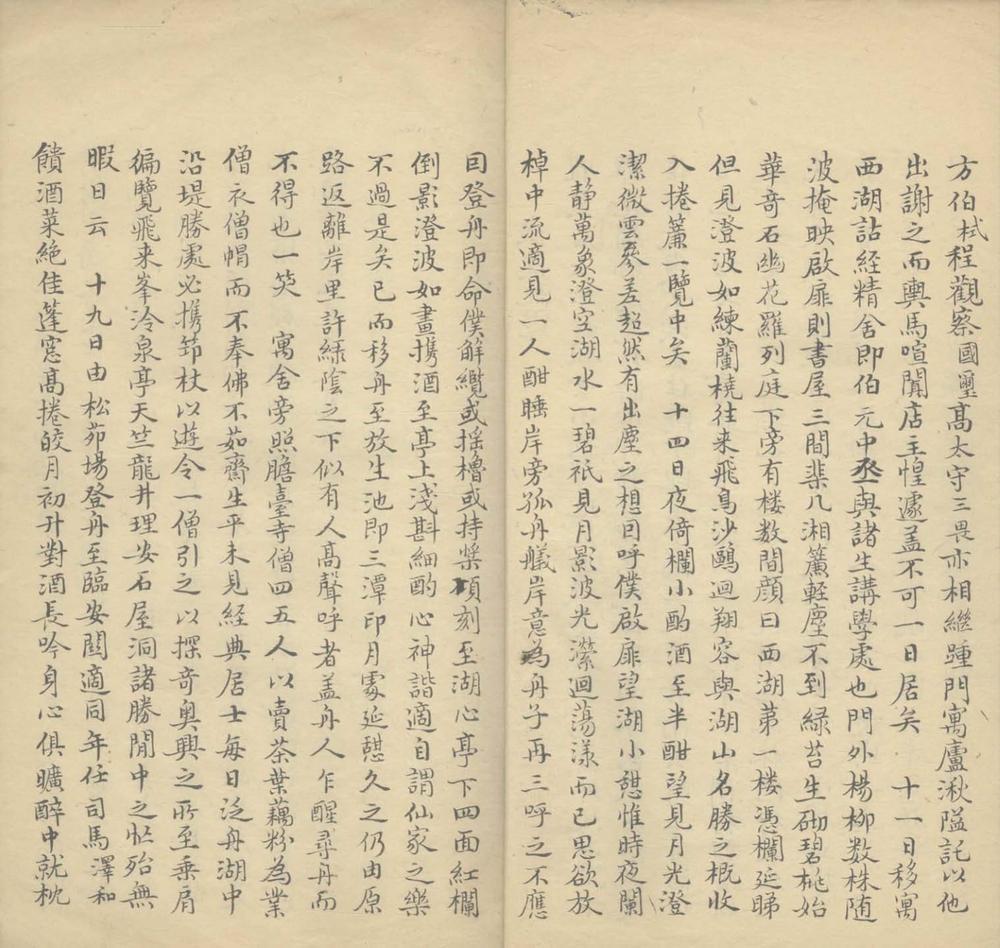 方伯栻程觀察國璽高太守三畏亦相繼踵門寓廬湫隘託以他
出謝之而輿馬喧闐店主惶遽盖不可一日居矣　十一日移寓
西湖詁經精舍即伯元中丞與諸生講學處也門外楊柳数株随
波掩映啟扉則書屋三間棐几湘簾輕塵不到綠苔生砌碧桃始
華奇石幽花羅列庭下旁有楼数間顔曰西湖苐一楼憑欄延睇
但見澄波如練蘭橈往来飛鳥沙鷗迴翔容與湖山名勝之概收
入捲簾一覽中矣　十四日夜倚欄小酌酒至半酣望見月光澄
潔微雲參差超然有出塵之想囙呼僕啟扉望湖小憩惟時夜闌
人静萬象澄空湖水一碧祇見月影波光瀠迴蕩漾而已思欲放
棹中流適見一人酣睡岸旁孤舟艤岸意為舟子再三呼之不應
囙登舟即命僕解纜或摇櫓或持槳頃刻至湖心亭下四面紅欄
倒影澄波如畫攜酒至亭上淺斟細酌心神諧適自謂仙家之樂
不過是矣已而移舟至放生池即三潭印月處延憇久之仍由原
路返離岸里許綠陰之下似有人髙聲呼者盖舟人乍醒尋舟而
不得也一笑　寓舍旁照膽臺寺僧四五人以賣茶葉藕粉為業
僧衣僧帽而不奉佛不茹齋生平未見經典居士每日泛舟湖中
沿堤勝處必攜笻杖以遊令一僧引之以探奇奥興之所至乗肩
徧覽飛来峯冷泉亭天竺龍井理安石屋洞諸勝閒中之忙殆無
暇日云　十九日由松茆場登舟至臨安閣適同年任司馬澤和
饋酒菜絶佳蓬窓髙捲皎月初升對酒長吟身心俱曠醉中就枕